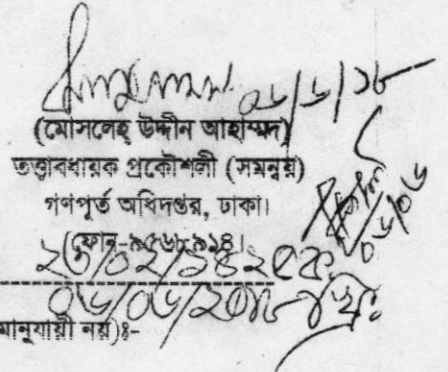 ০৬/৬/১৮
(মোসলেহ উদ্দীন আহাম্মদ)
তত্ত্বাবধায়ক প্রকৌশলী (সমন্বয়)
গণপূর্ত অধিদপ্তর, ঢাকা।
(ফোন-৯৫৬৮৯১৪।
০৬/০৬
২৩/০২/১৪২৫বঃ
০৬/০৬/২০১৮খ্রিঃ
মানুযায়ী নয়)ঃ-